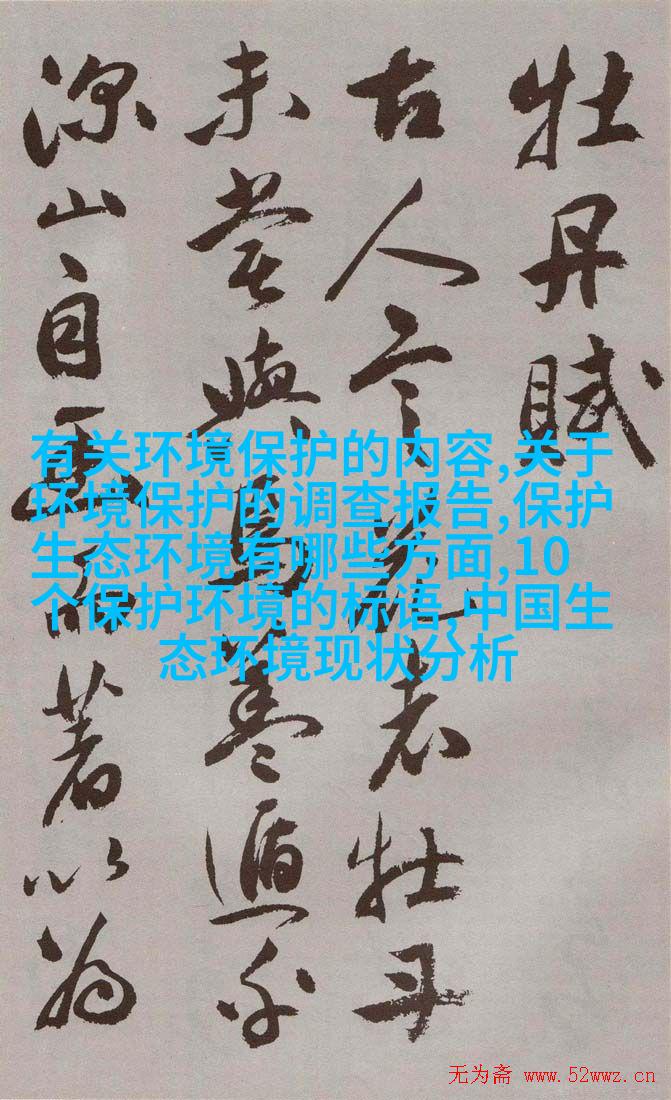 牡丹賦
古人言花者牡丹
未嘗與焉蓋遁乎
深山自幽而著以為
有关环境保护的内容,关于
环境保护的调查报告,保护
生态环境有哪些方面,10
个保护环境的标语,中国生
态环境现状分析
无为斋 www.52wwz.cn